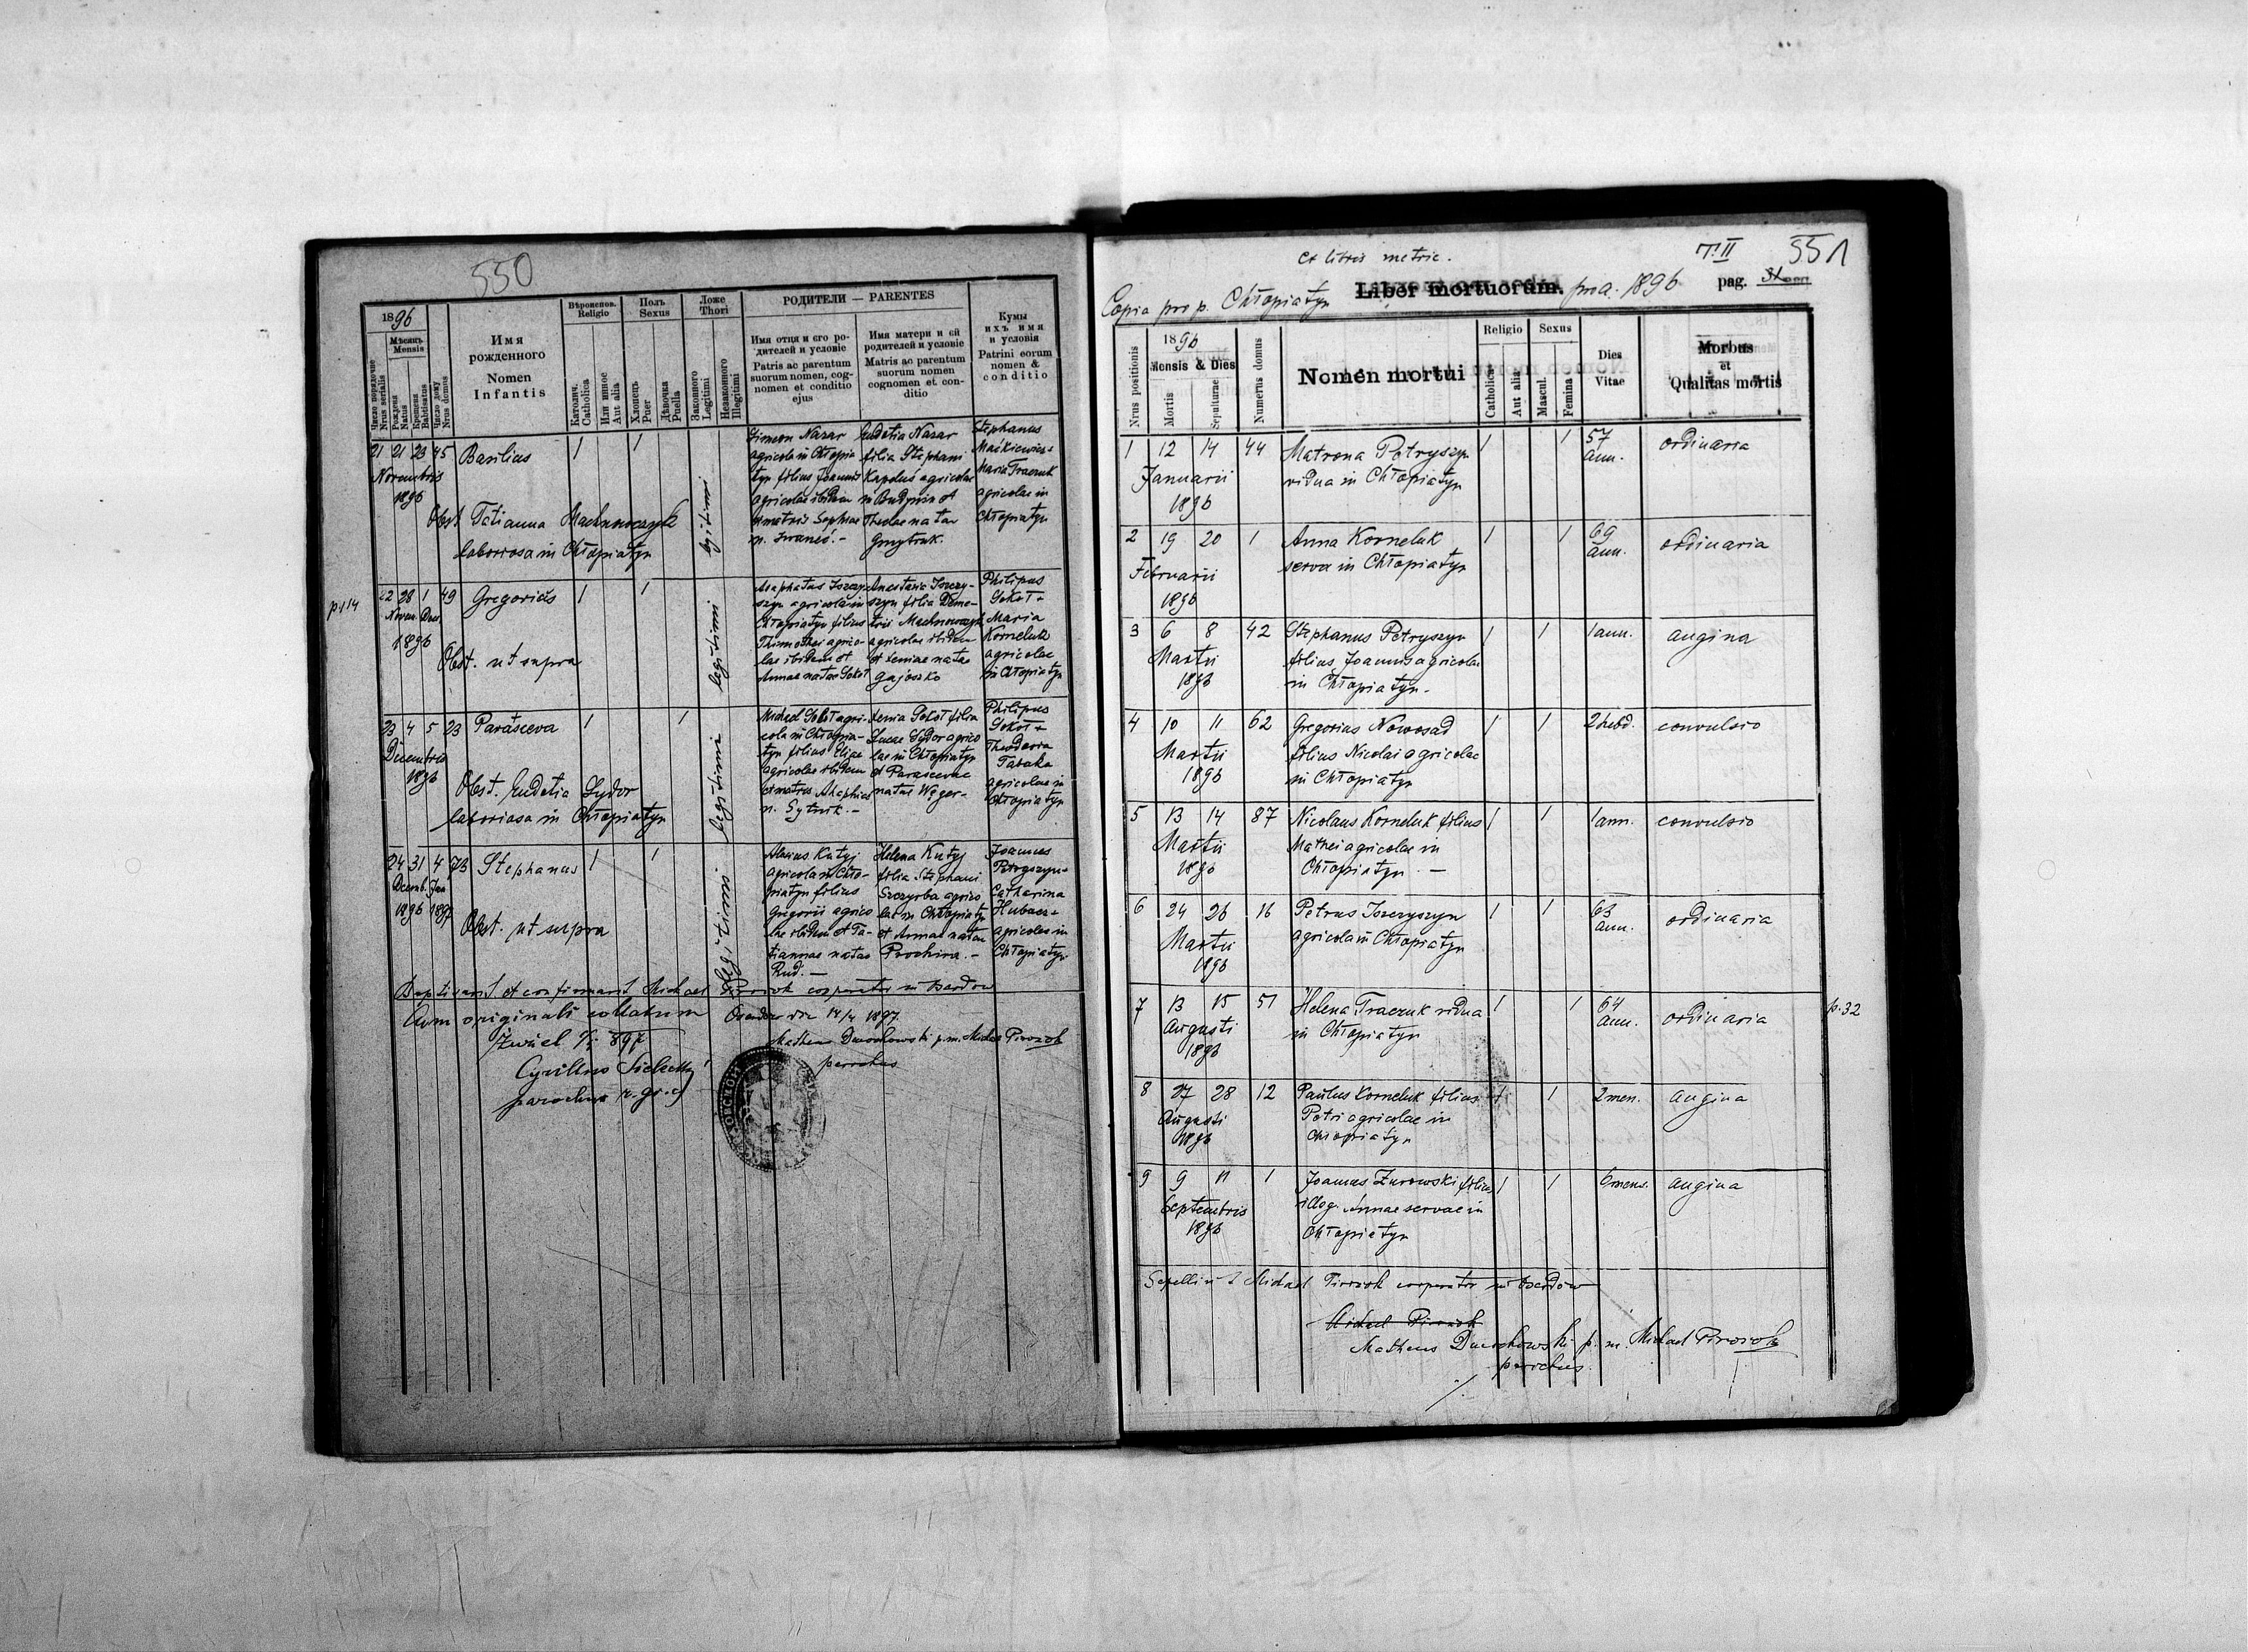 550
1896
Мѣсяць
Mensis
Число порядочне
Nrus serialis
Рожденя
Natus
Крещеня
Babtisatus
Число дому
Nrus domus
Имя
рожденного
Nomen
Infantis
Вѣроиспов.
Religio
Католич.
Catholica
Или инное
Aut alia
Полъ
Sexus
Хлопець
Puer
Дѣвочка
Puella
Ложе
Thori
Законного
Legitimi
Незаконного
Illegitimi
РОДИТЕЛИ — PARENTES
Имя отця и его ро-
дителей и условіе
Patris ac parentum
suorum nomen, cog-
nomen et conditio
ejus
Имя матери и ей
родителей и условіе
Matris ac parentum
suorum nomen
cognomen et con-
ditio
Кумы
ихъ имя
и условія
Patrini eorum
nomen &
conditio
21 21 23 45 Basilius 1 1
Novembris
1896
Obst. Tatianna Machnowczyk
laboriosa in Chłopiatyn
legitimi
Simeon Nazar
agricola in Chłopia
tyn filius Joannis
agricolae ibidem
et matris Sophiae
n. Iwanéć.-
Eudotia Nazar
filia Stephani
Kapelus agricolae
in Budynin et
Theclae natae
Gmytruk.
Stephanus
Maćkiewicz +
Maria Traczuk
agricolae in
Chłopiatyn
p. 114
22 28 1 49 Gregorius 1 1
Novem. Dec.
1896
Obst. ut supra
legitimi
Asaphatus Iszczy-
szyn agricola in
Chłopiatyn filius
Thimothei agrico-
lae ibidem et
Annae natae Sokoł
Anastasia Iszczy-
szyn filia Deme-
trii Machnowczyk
agricolae ibidem
et Xeniae natae
Gajoszko
Philipus
Sokoł +
Maria
Korneluk
agricolae
in Chłopiatyn
23 4 5 23 Parasceva 1 1
Decembris
1896
Obst. Eudotia Sydor
laboriosa in Chłopiatyn
legitimi
Michael Sokoł agri-
cola in Chłopia-
tyn filius Eliae
agricolae ibidem
et matris Ahaphiae
n. Sytnik.-
Xenia Sokoł filia
Lucae Sydor agrico
lae in Chłopiatyn
et Parascevae
natae Węger-
Philipus
Sokoł +
Theodosia
Tabaka
agricolae in
Chłopiatyn
24 31 4 73 Stephanus 1 1
Decemb. Jan
1896 1897
Obst. ut supra
legitimi
Alexius Kutyj
agricola in Chło-
piatyn filius
Gregorii agrico
lae ibidem et Ta-
tiannae natae
Rud. —
Helena Kutyj
filia Stephani
Szczyrba agrico
lae in Chłopiatyn
et Annae natae
Prochira.-
Joannes
Petryszyn +
Catharina
Hubacz +
agricolae in
Chłopiatyn
Baptisavit et confirmavit Michael Pirozok cooperator in Oserdów
Cum originali collatum
Żniatyn 1/5 897
Cyrillus Sielecki
parochus r. gr. c.
Oserdów die 14/4 1897.
Matheus Durochowski p. m. Michael Pirozok
parochus
T. II 551
Ex libris metric.
Copia pro p. Chłopiatyn Liber mortuorum. pro a. 1896 pag.
Nrus positionis
1896
Mensis & Dies
Mortis
Sepulturae
Numerus domus
Nomen mortui
Religio
Catholica
Aut alia
Sexus
Mascul.
Femina
Dies
Vitae
Morbus
et
Qualitas mortis
1 12 14 44 Matrona Petryszyn 1 1 57 ann. ordinaria
Januarii vidua in Chłopiatyn
1896
2 19 20 1 Anna Korneluk 1 1 69 ann. ordinaria
Februarii serva in Chłopiatyn
1896
3 6 8 42 Stephanus Petryszyn 1 1 1 ann. angina
Martii filius Joannis agricolae
1896 in Chłopiatyn.
4 10 11 62 Gregorius Nowosad 1 1 2 hebd. convulsio
Martii filius Nicolai agricolae
1896 in Chłopiatyn
5 13 14 87 Nicolaus Korneluk filius 1 1 1 ann. convulsio
Martii Mathei agricolae in
1896 Chłopiatyn. —
6 24 26 16 Petrus Iszczyszyn 1 1 63 ann. ordinaria
Martii agricola in Chłopiatyn
1896
7 13 15 51 Helena Traczuk vidua 1 1 64 ann. ordinaria p. 32
Augusti in Chłopiatyn
1896
8 27 28 12 Paulus Korneluk filius 1 1 2 men. angina
Augusti Petri agricolae in
1896 Chłopiatyn
9 9 11 1 Joannes Żurowski filius 1 1 6 mens. angina
Septembris illeg. Annae servae in
1896 Chłopiatyn
Sepelivit Michael Pirozok cooperator in Oserdów
Michael Pirozok
Matheus Durochowski p. m. Michael Pirozok
parochus.